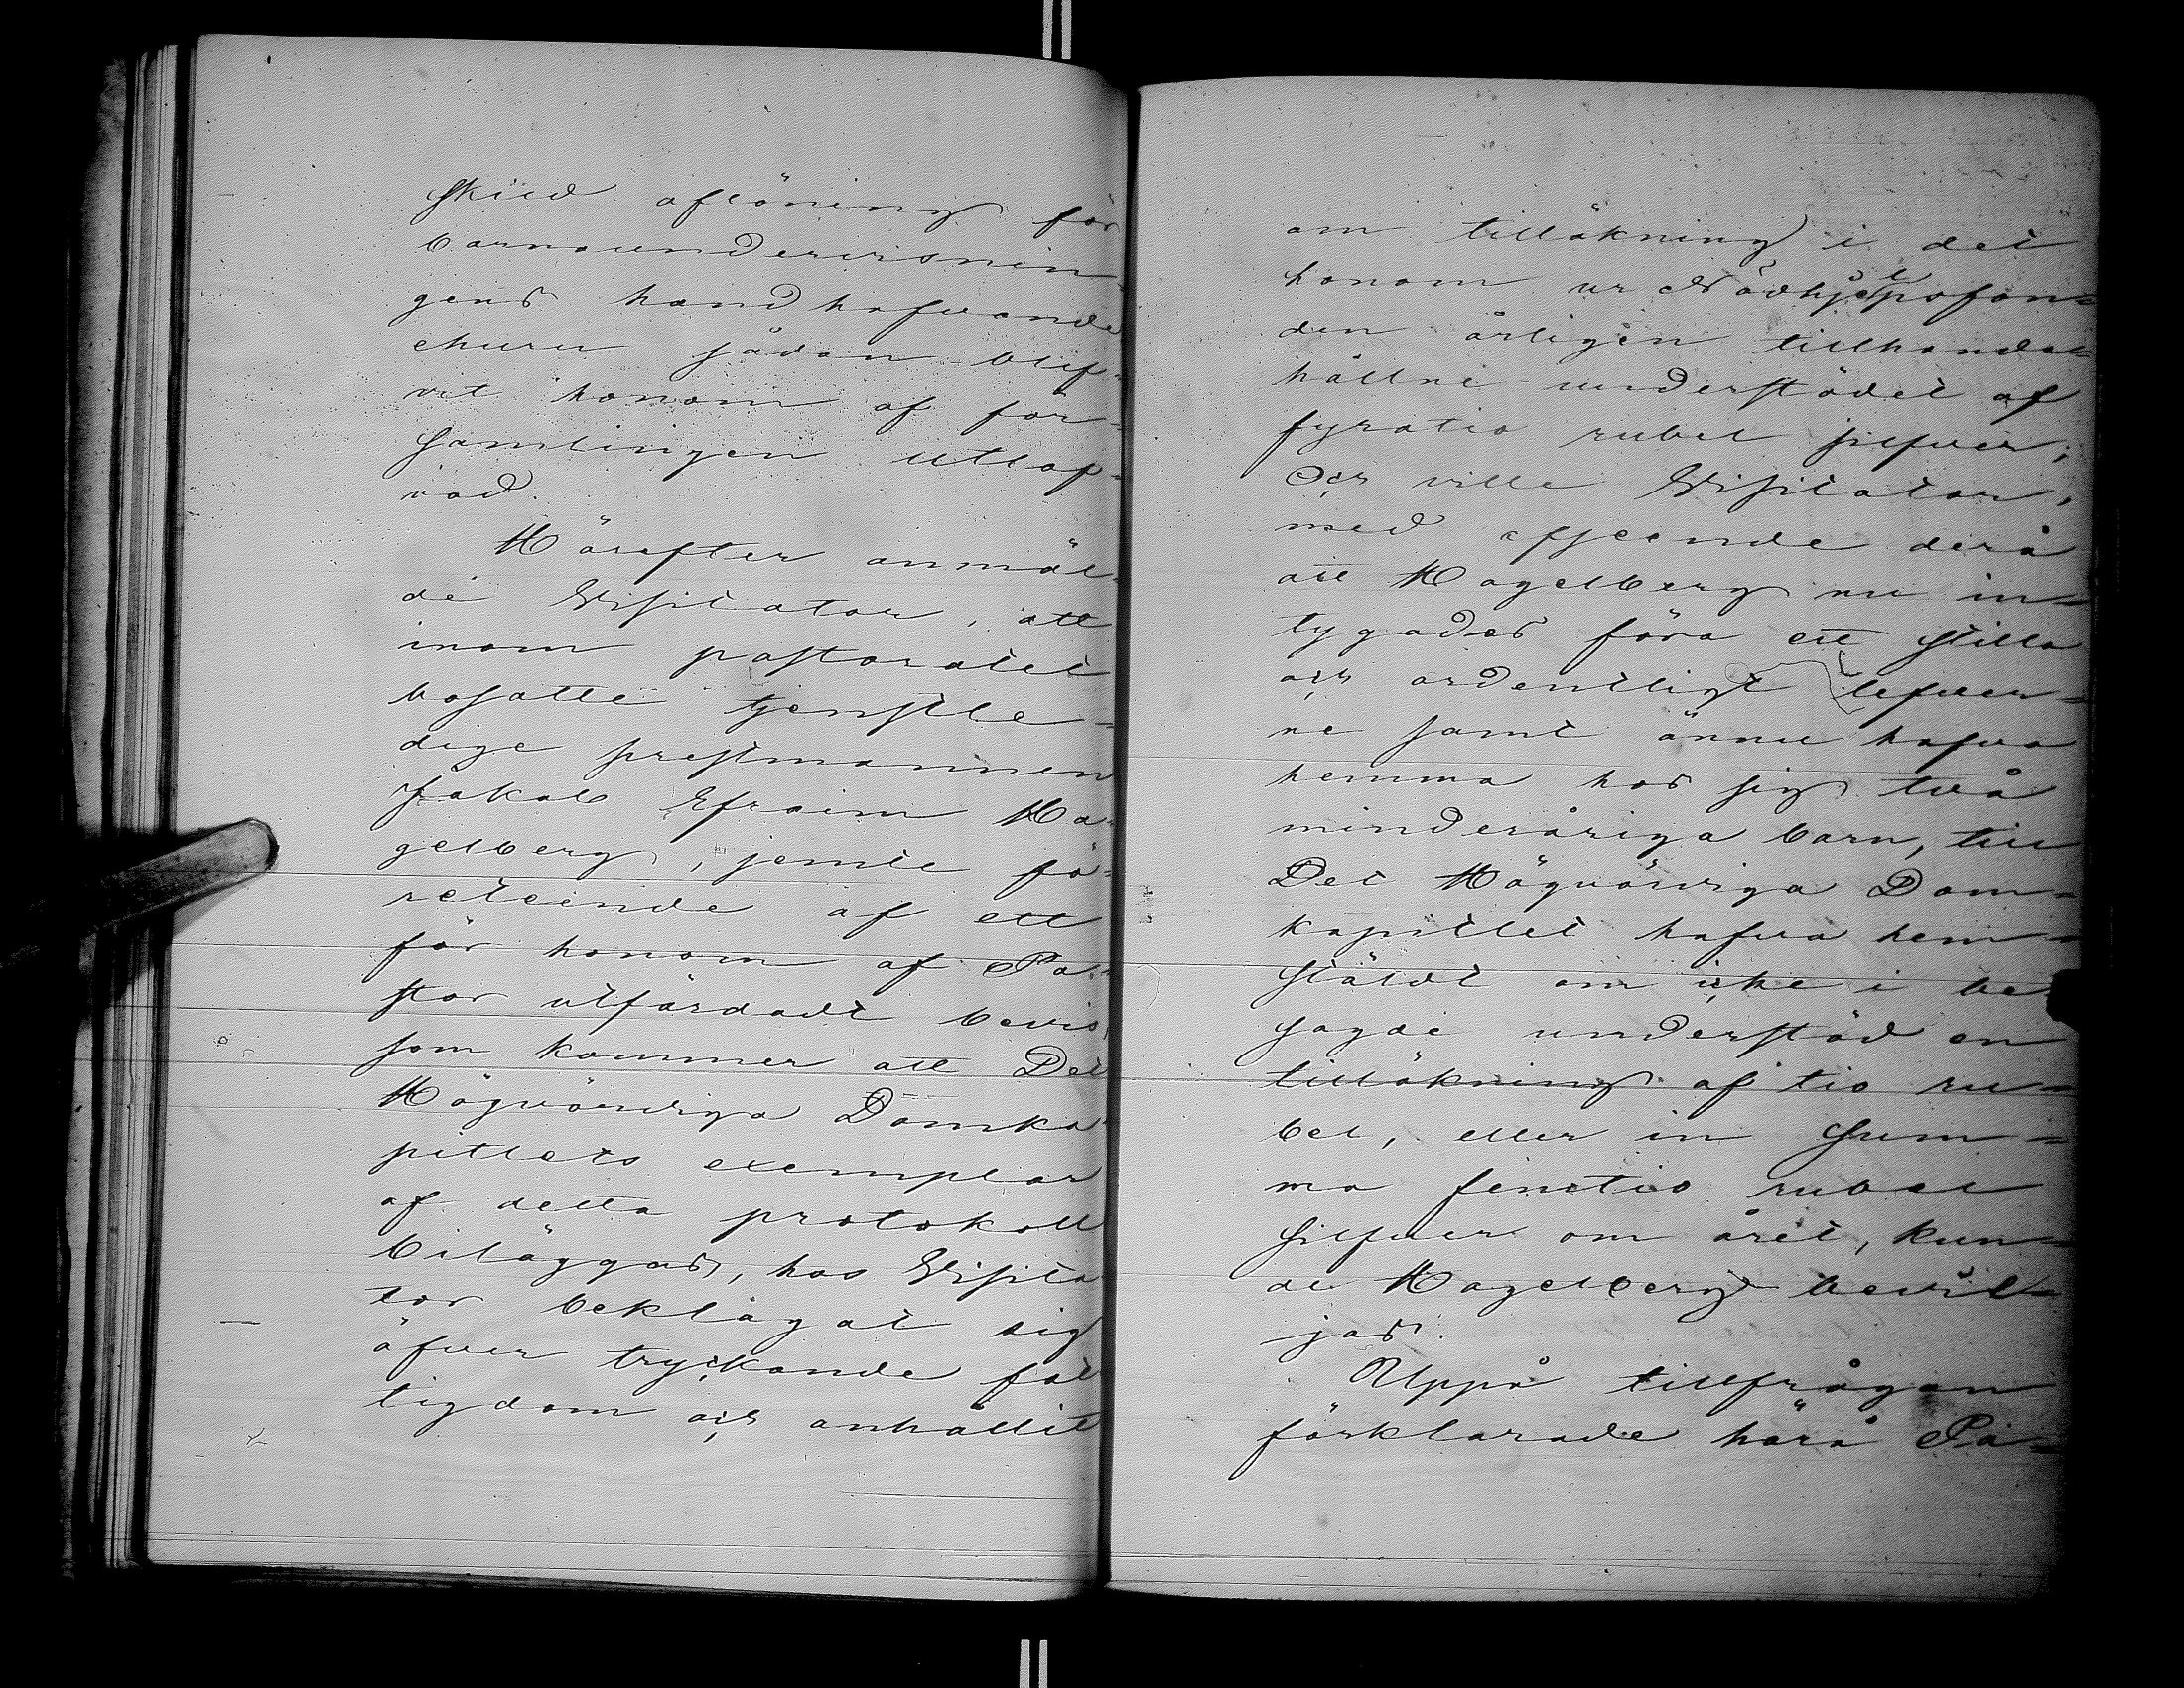 skild aflöning för
barnaundervisnin-
gens handhafvande
ehuru sådan blif-
vit honom af för-
samlingen utlof-
vad.
Härefter anmäl-
de Visitator, att
inom pastoratet
bosatte tjenstle-
dige prestmannen
Jakob Efraim Ha-
gelberg, jemte fö-
reteende af ett
för honom af Pa-
stor utfärdadt bevis,
som kommer att Det
Högvördiga Domka-
pitlets exemplar
af detta protokoll
biläggas, hos Visita-
tor beklagat sig
öfver tryckande fat-
tigdom och anhållit
om tillökning i det
honom ur Nödhjelpsfon-
den årligen tillhanda-
hållne understödet af
fyratio rubel silfver;
Och ville Visitator,
med afseende derå
att Hagelberg nu in-
tygades föra ett stilla
och ordentligt lefver-
ne samt ännu hafva
hemma hos sig två
minderåriga barn, till
Det Högvördiga Dom-
kapitlet hafva hem-
stäldt om icke i be-
sagde understöd en
tillökning af tio ru-
bel, eller in Sum-
ma femtio rubel
silfver om året, kun-
de Hagelberg bevil-
jas.
Uppå tillfrågan
förklarade härå Pa-